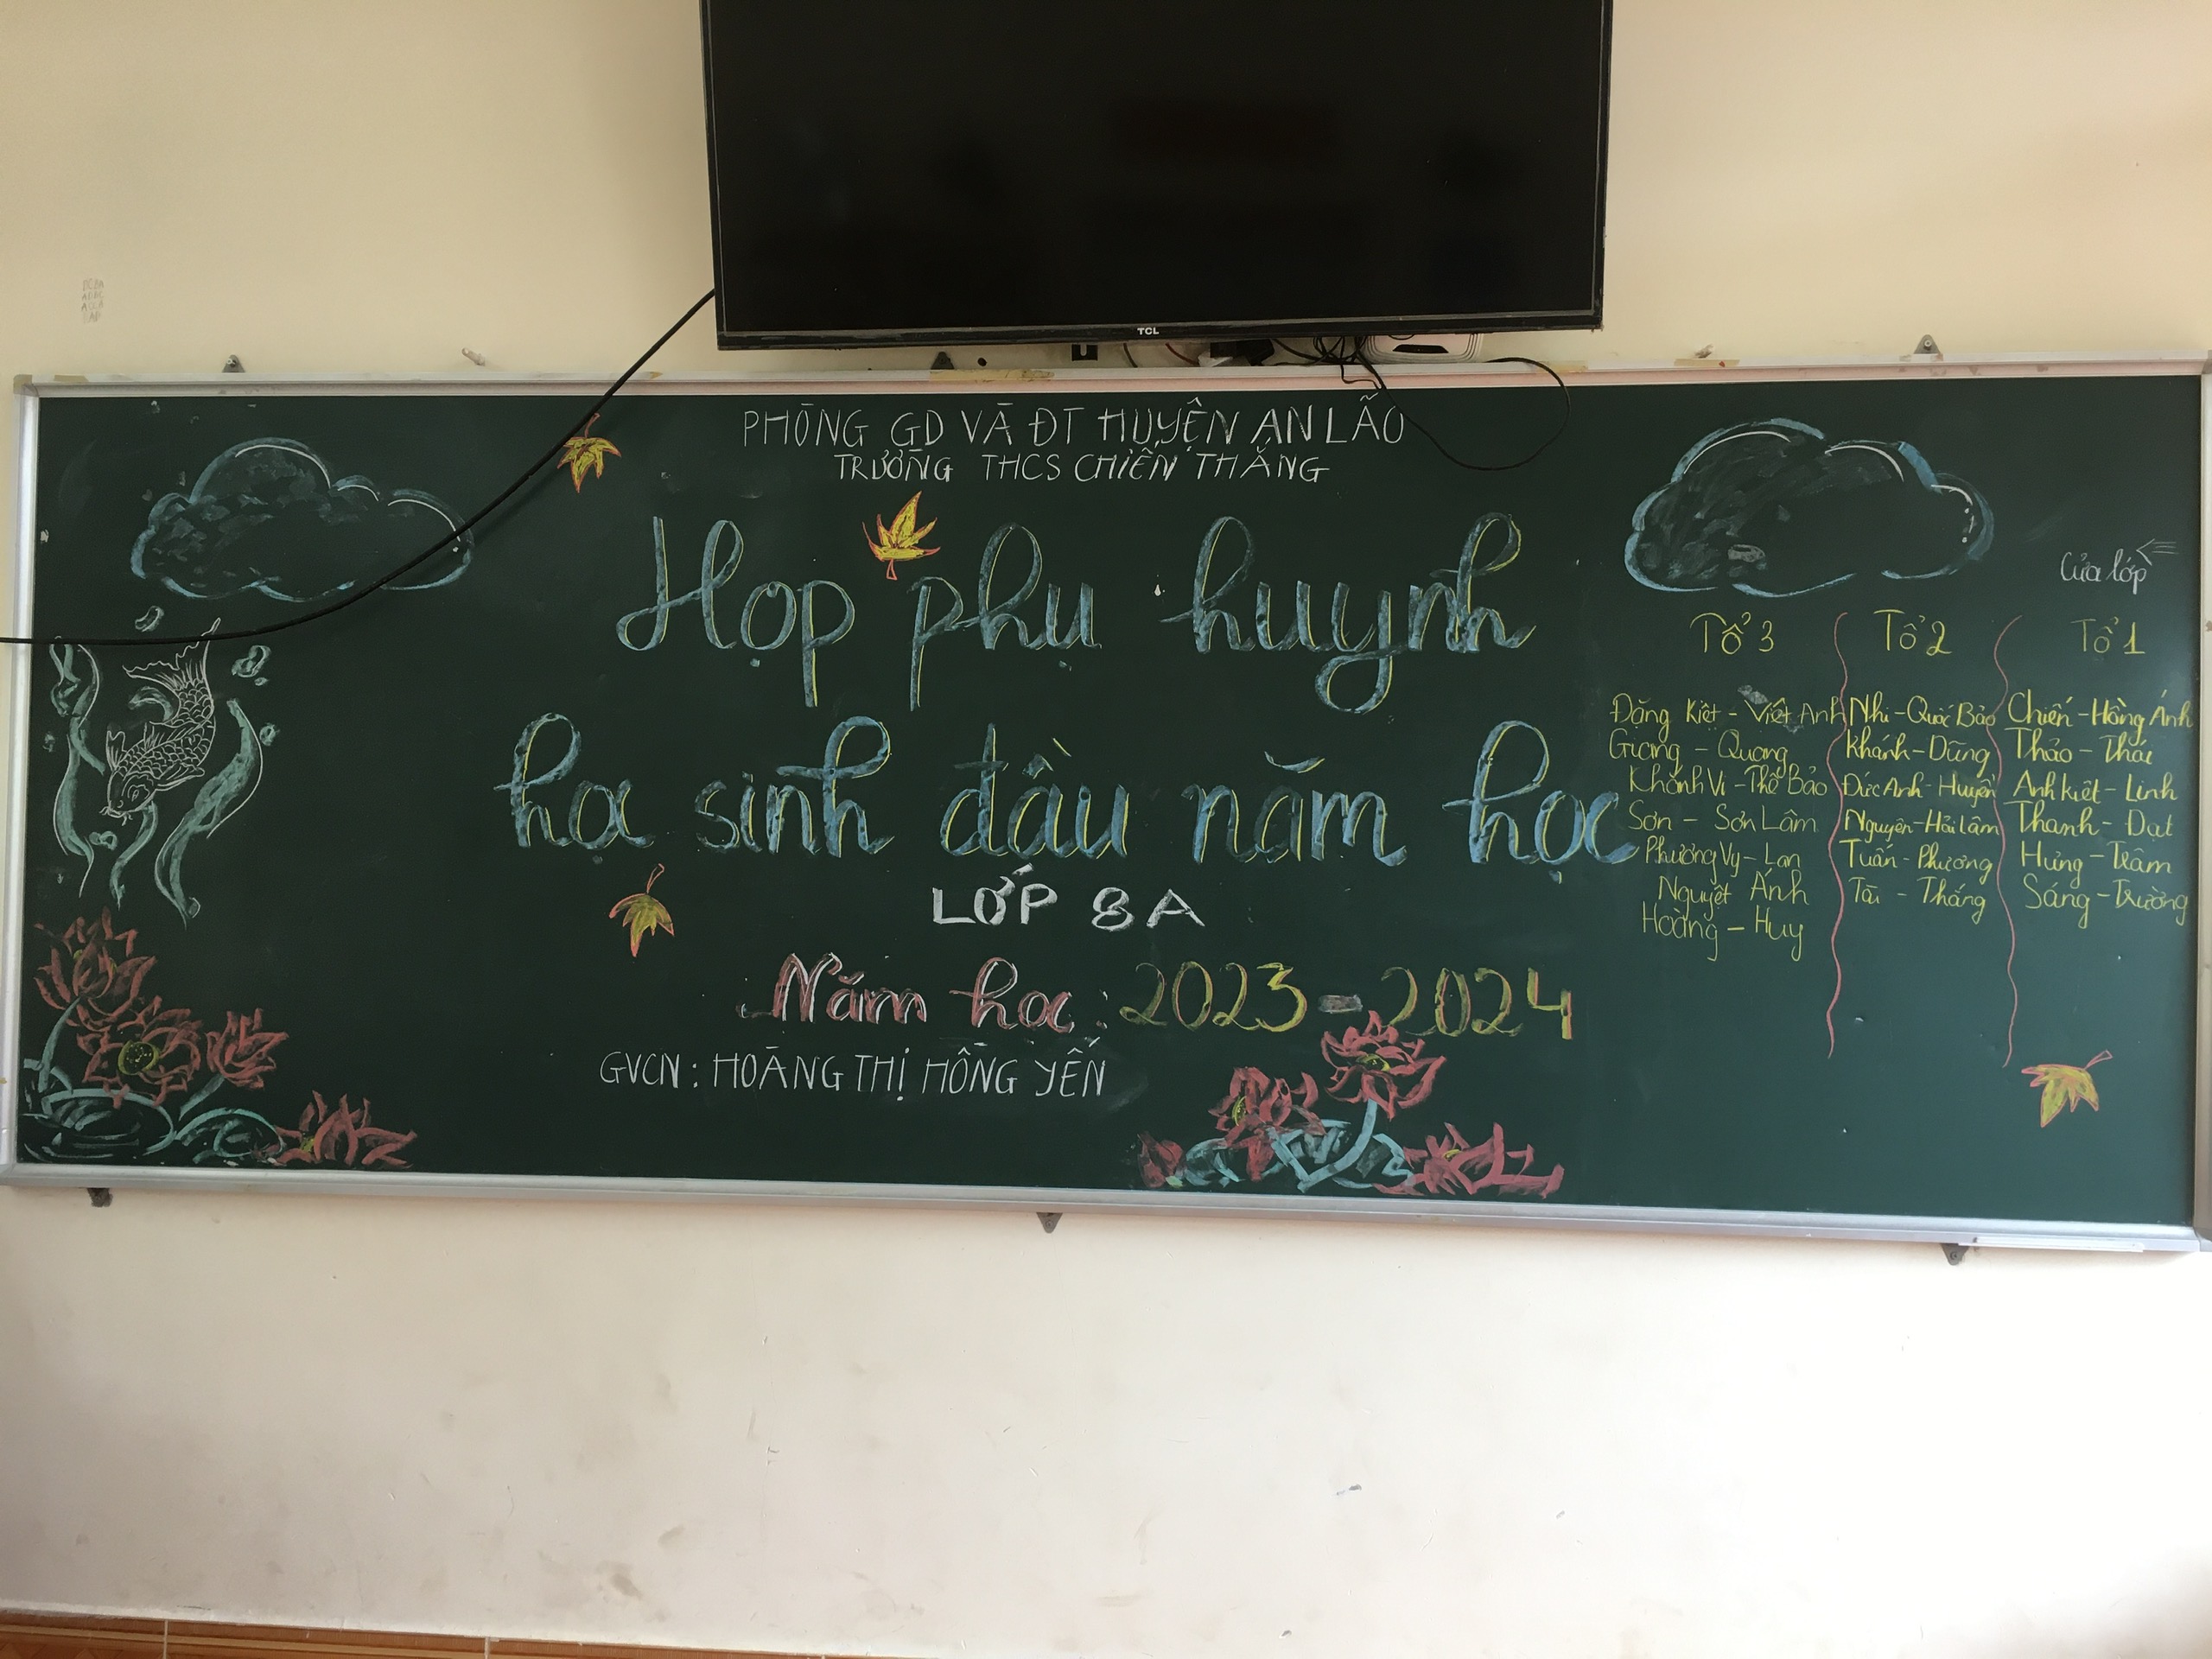 TCL
PHÒNG GD VÀ ĐT HUYỆN AN LÃO
TRƯỜNG THCS CHIẾN THẮNG
Họp phụ huynh
học sinh đầu năm học
LỚP 8A
Năm học: 2023-2024
GVCN: HOÀNG THỊ HỒNG YẾN
Cửa lớp
Tổ 3
Đăng Kiệt - Việt Anh
Giang - Quang
Khánh Vi - Thế Bảo
Sơn - Sơn Lâm
Phương Vy - Lan
Nguyệt Ánh
Hoàng - Huy
Tổ 2
Nhi - Quốc Bảo
Khánh - Dũng
Đức Anh - Huyền
Nguyên - Hải Lâm
Tuấn - Phương
Tài - Thắng
Tổ 1
Chiến - Hồng Ánh
Thảo - Thái
Anh kiệt - Linh
Thanh - Đạt
Hưng - Trâm
Sáng - Trường